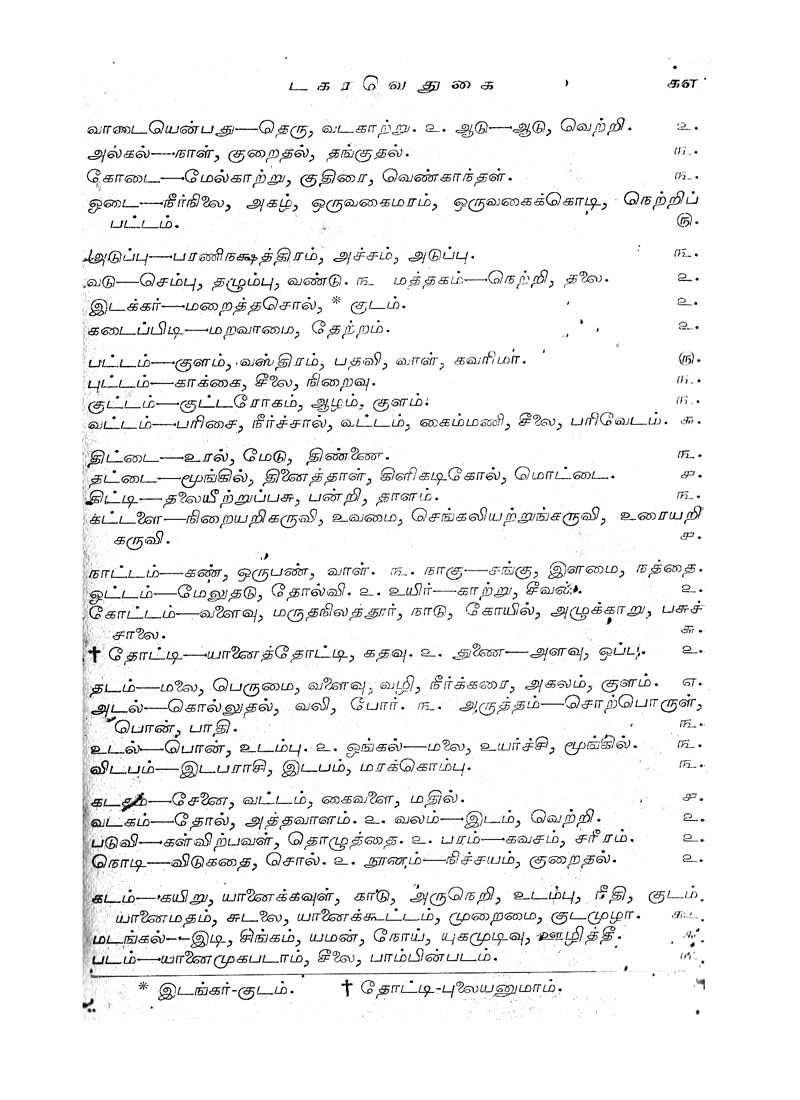 டகரவெதுகை ௧௭
வாடையென்பது—தெரு, வடகாற்று. ௨. ஆடு—ஆடு, வெற்றி. ௨.
அல்கல்—நாள், குறைதல், தங்குதல். ௩.
கோடை—மேல்காற்று, குதிரை, வெண்காந்தள். ௩.
ஓடை—நீர்நிலை, அகழ், ஒருவகைமரம், ஒருவகைக்கொடி, நெற்றிப்
பட்டம். ௫.
அடுப்பு—பரணிநக்ஷத்திரம், அச்சம், அடுப்பு. ௩.
வடு—செம்பு, தழும்பு, வண்டு. ௩. மத்தகம்—நெற்றி, தலை. ௨.
இடக்கர்—மறைத்தசொல், * குடம். ௨.
கடைப்பிடி—மறவாமை, தேற்றம். ௨.
பட்டம்—குளம், வஸ்திரம், பதவி, வாள், கவரிமா. ௫.
புட்டம்—காக்கை, சீலை, நிறைவு. ௩.
குட்டம்—குட்டரோகம், ஆழம், குளம். ௩.
வட்டம்—பரிசை, நீர்ச்சால், வட்டம், கைம்மணி, சீலை, பரிவேடம். ௬.
திட்டை—உரல், மேடு, திண்ணை. ௩.
தட்டை—மூங்கில், தினைத்தாள், கிளிகடிகோல், மொட்டை. ௪.
கிட்டி—தலையீற்றுப்பசு, பன்றி, தாளம். ௩.
கட்டளை—நிறையறிகருவி, உவமை, செங்கலியற்றுங்கருவி, உரையறி
கருவி. ௪.
நாட்டம்—கண், ஒருபண், வாள். ௩. நாகு—சங்கு, இளமை, நத்தை.
ஓட்டம்—மேலுதடு, தோல்வி. ௨. உயிர்—காற்று, சீவன். ௨.
கோட்டம்—வளைவு, மருதநிலத்தூர், நாடு, கோயில், அழுக்காறு, பசுச்
சாலை. ௬.
† தோட்டி—யானைத்தோட்டி, கதவு. ௨. துணை—அளவு, ஒப்பு. ௨.
தடம்—மலை, பெருமை, வளைவு, வழி, நீர்க்கரை, அகலம், குளம். ௭.
அடல்—கொல்லுதல், வலி, போர். ௩. அருத்தம்—சொற்பொருள்,
பொன், பாதி. ௩.
உடல்—பொன், உடம்பு. ௨. ஓங்கல்—மலை, உயர்ச்சி, மூங்கில். ௩.
விடபம்—இடபராசி, இடபம், மரக்கொம்பு. ௩.
கடகம்—சேனை, வட்டம், கைவளை, மதில். ௪.
வடகம்—தோல், அத்தவாளம். ௨. வலம்—இடம், வெற்றி. ௨.
படுவி—கள்விற்பவள், தொழுத்தை. ௨. பரம்—கவசம், சரீரம். ௨.
நொடி—விடுகதை, சொல். ௨. நூனம்—நிச்சயம், குறைதல். ௨.
கடம்—கயிறு, யானைக்கவுள், காடு, அருநெறி, உடம்பு, நீதி, குடம்,
யானைமதம், சுடலை, யானைக்கூட்டம், முறைமை, குடமுழா. ௧௨.
மடங்கல்—இடி, சிங்கம், யமன், நோய், யுகமுடிவு, ஊழித்தீ. ௬.
படம்—யானைமுகபடாம், சீலை, பாம்பின்படம். ௩.
* இடங்கர்-குடம். † தோட்டி-புலையனுமாம்.